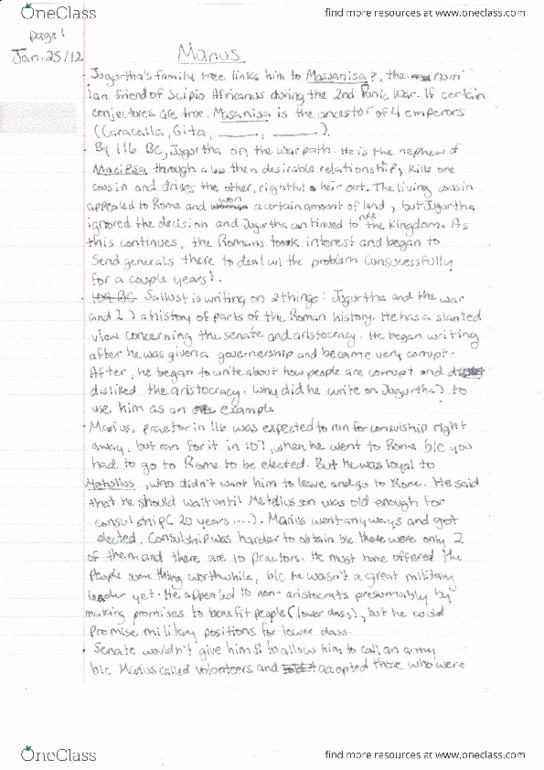 OneClass
find more resources at www.oneclass.com
page 1
Jan. 25/12
Marius
· Jugurtha's family tree links him to Massanisa?, the num
ian friend of Scipio Africanus during the 2nd Punic War. If certain
conjectures are true, Masanisa is the ancestor of 4 emperors
(Caracalla, Gita, ____, ____).
· By 116 BC, Jugurtha on the war path. He is the nephew of
Macipsa through a less then desirable relationship, kills one
cousin and drives the other, rightful heir out. The living cousin
appealed to Rome and won a certain amount of land, but Jugurtha
ignored the decision and Jugurtha continued to rule the Kingdom. As
this continues, the Romans took interest and began to
send generals there to deal w/ the problem (unsucessfully
for a couple years).
· Sallust is writing on 2 things: Jugurtha and the war
and 2) a history of parts of the Roman history. He has a slanted
view concerning the senate and aristocracy. He began writing
after he was given a governership and became very corrupt.
After, he began to write about how people are corrupt and
disliked the aristocracy. Why did he write on Jugurtha? to
use him as an example
· Marius, praetor in 116 was expected to run for consulship right
away, but ran for it in 107, when he went to Rome b/c you
had to go to Rome to be elected. But he was loyal to
Metullus, who didn't want him to leave and go to Rome. He said
that he should wait until Metellus son was old enough for
consulship (20 years ....). Marius went anyways and got
elected. Consulship was harder to obtain b/c there were only 2
of them and there are 10 praetors. He must have offered the
people something worthwhile, b/c he wasn't a great military
leader yet. He appealed to non-aristocrats presumably by
making promises to benefit people (lower class), but he could
promise military positions for lower class.
· Senate wouldn't give him $ to allow him to call an army
b/c Marius called volunteers and accepted those who were
OneClass
find more resources at www.oneclass.com